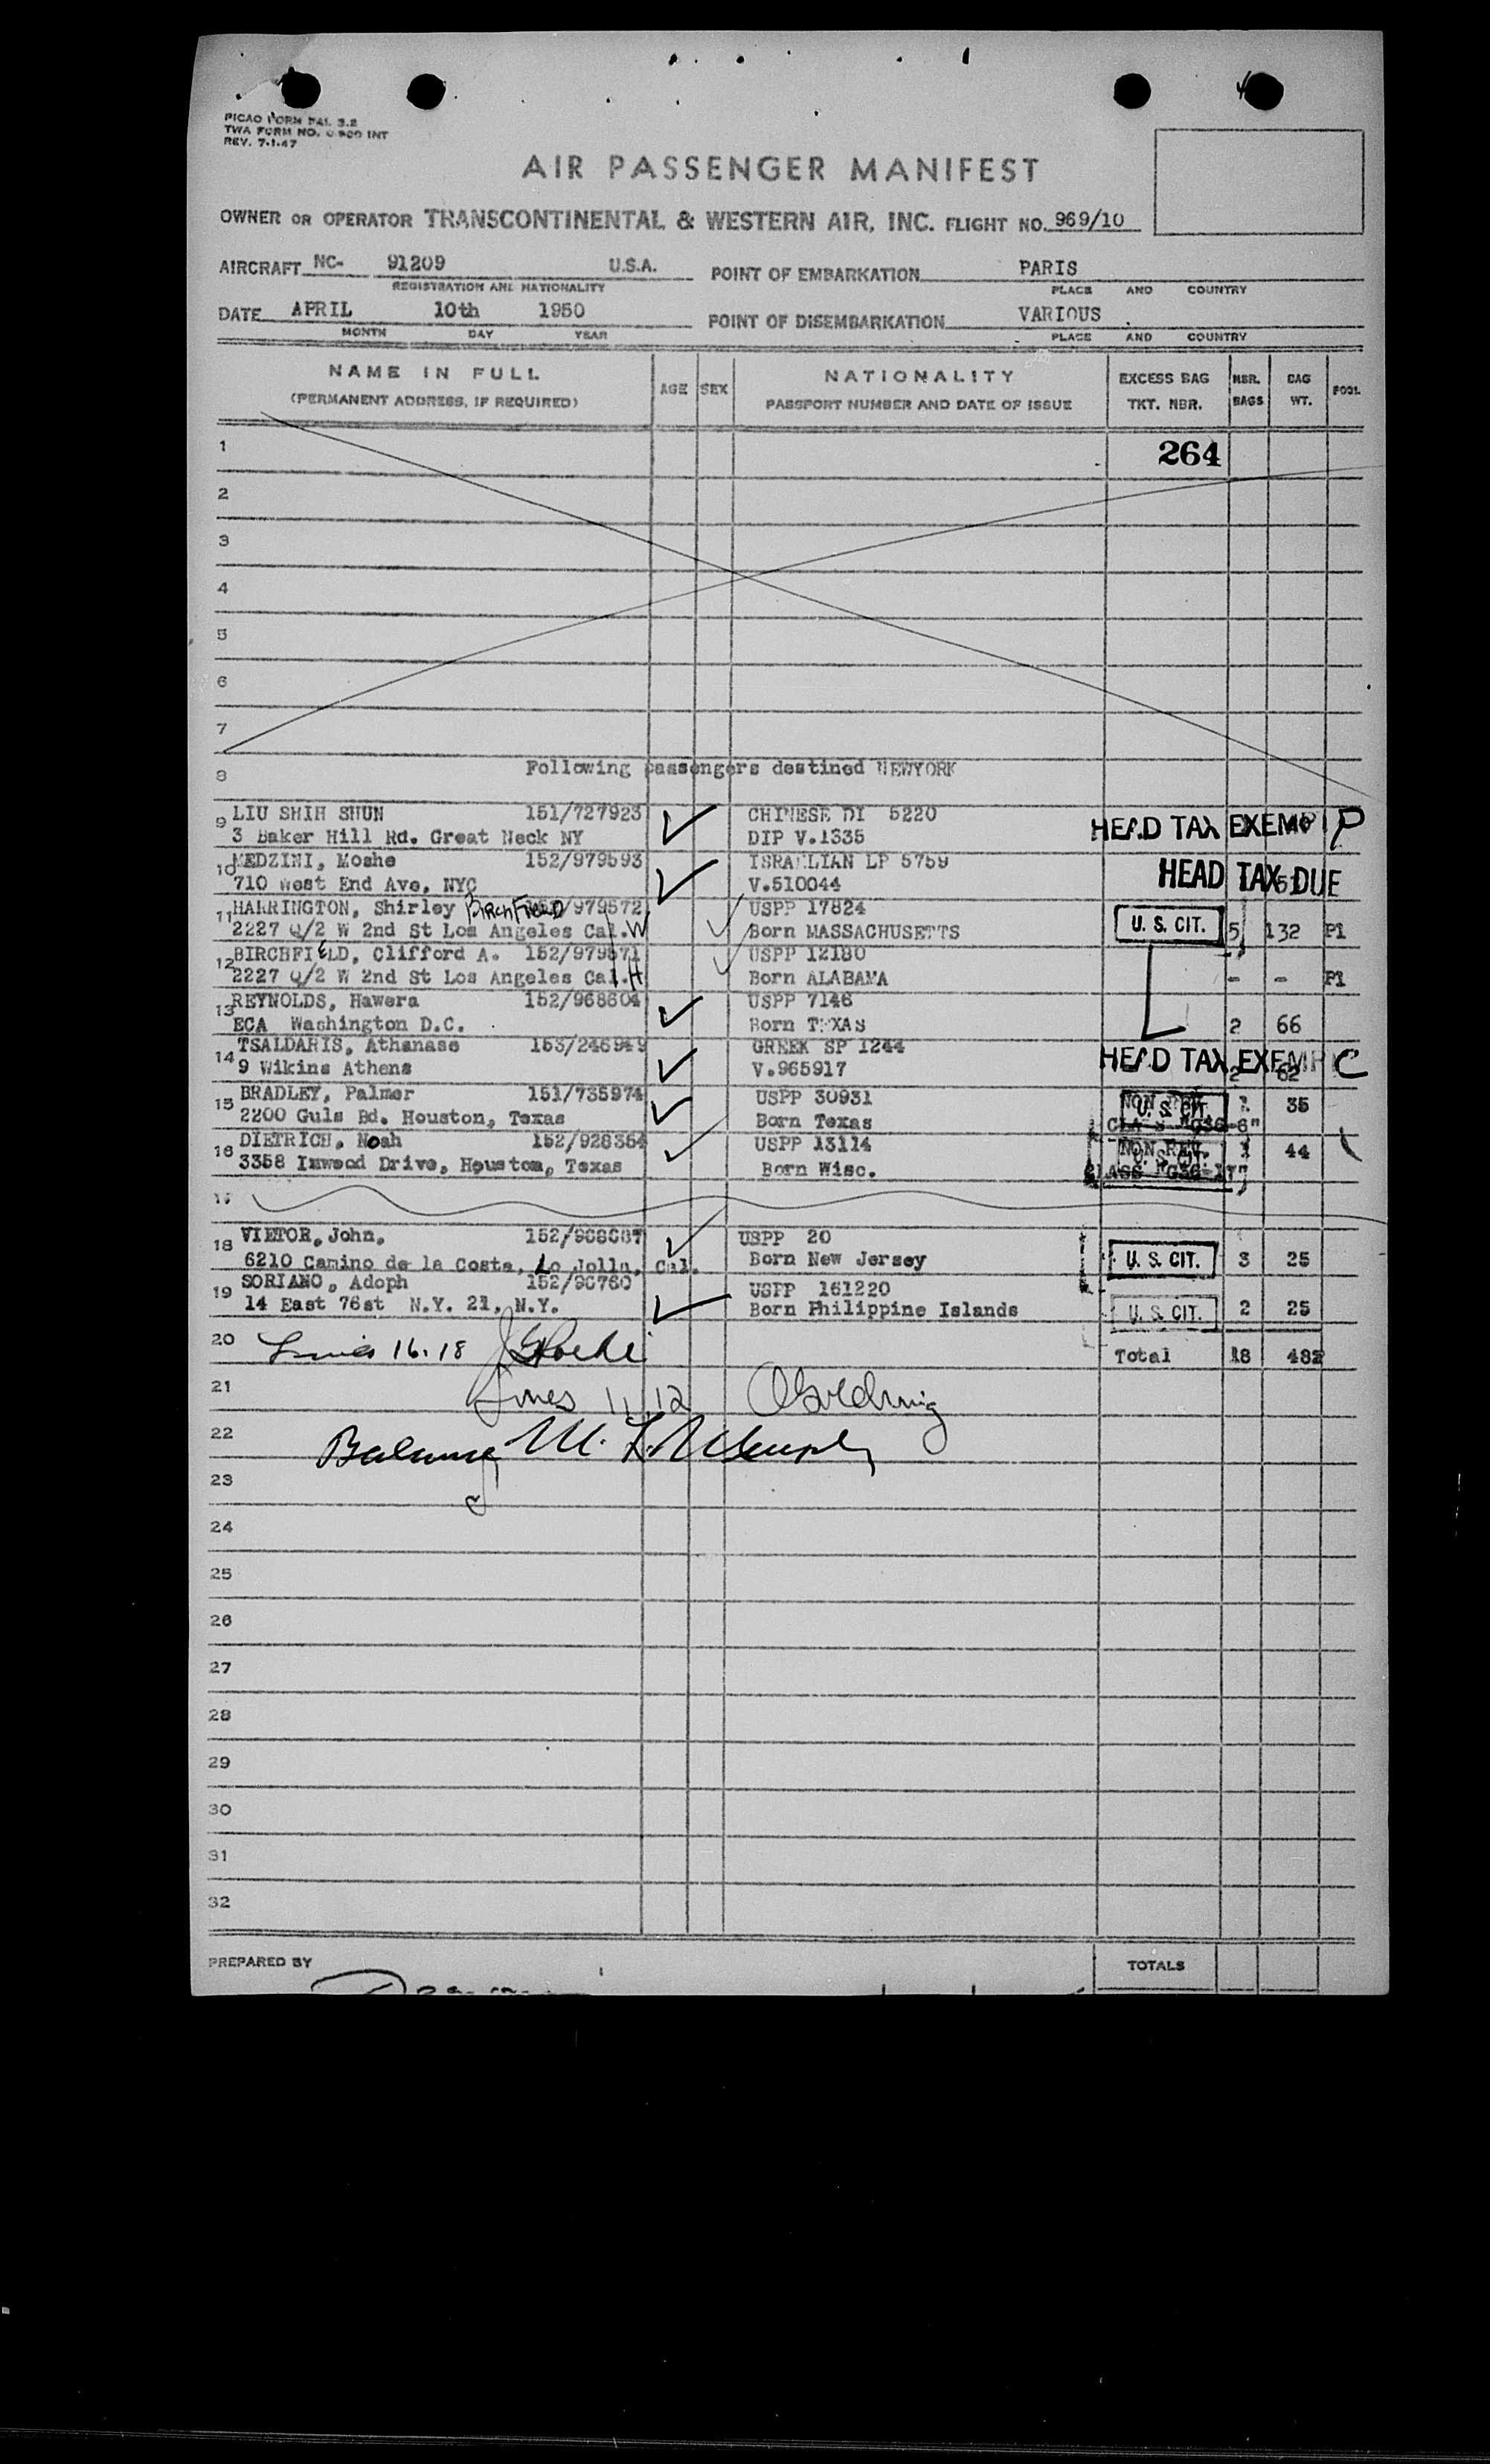 PICAO FORM PAI. 3.2
TWA FORM NO. INT
REV. 7-1-47
AIR PASSENGER MANIFEST
OWNER OR OPERATOR TRANSCONTINENTAL & WESTERN AIR, INC. FLIGHT NO. 969/10
AIRCRAFT NC- 91209 U.S.A. POINT OF EMBARKATION PARIS
REGISTRATION AND NATIONALITY PLACE AND COUNTRY
DATE APRIL 10th 1950 POINT OF DISEMBARKATION VARIOUS
MONTH DAY YEAR PLACE AND COUNTRY
NAME IN FULL AGE SEX NATIONALITY EXCESS BAG NBR. BAG POOL
(PERMANENT ADDRESS, IF REQUIRED) PASSPORT NUMBER AND DATE OF ISSUE TKT. NBR. BAGS WT.
1 264
2
3
4
5
6
7
8 Following passengers destined NEWYORK
9 LIU SHIH SHUN 151/727923 CHINESE DI 5220
3 Baker Hill Rd. Great Neck NY DIP V.1335 HEAD TAX EXEMPT P
10 MEDZINI, Moshe 152/979593 ISRAELIAN LP 5759
710 West End Ave, NYC V.510044 HEAD TAX DUE
11 HARRINGTON, Shirley BIRCHFIELD /979572 USPP 17824
2227 Q/2 W 2nd St Los Angeles Cal. W Born MASSACHUSETTS U. S. CIT. 5 132 P1
12 BIRCHFIELD, Clifford A. 152/979571 USPP 12180
2227 Q/2 W 2nd St Los Angeles Cal. H Born ALABAMA - - P1
13 REYNOLDS, Hawera 152/968604 USPP 7146
ECA Washington D.C. Born TEXAS 2 66
14 TSALDARIS, Athanase 153/246949 GREEK SP 1244
9 Wikins Athens V.965917 HEAD TAX EXEMPT C 2 62
15 BRADLEY, Palmer 151/735974 USPP 30931 NON REV. U. S. CIT. 1 35
2200 Guls Bd. Houston, Texas Born Texas
16 DIETRICH, Noah 152/928354 USPP 13114 NON REV. U. S. CIT. 1 44
3358 Inwood Drive, Houston, Texas Born Wisc. CLASS
17
18 VIETOR, John, USPP 20
6210 Camino de la Costa, Lo Jolla, Cal. Born New Jersey U. S. CIT. 3 25
19 SORIANO, Adoph 152/90760 USPP 161220
14 East 76st N.Y. 21, N.Y. Born Philippine Islands U. S. CIT. 2 25
20 Lines 16.18 Total 18 482
21 Lines 11, 12
22 Balance
23
24
25
26
27
28
29
30
31
32
PREPARED BY TOTALS